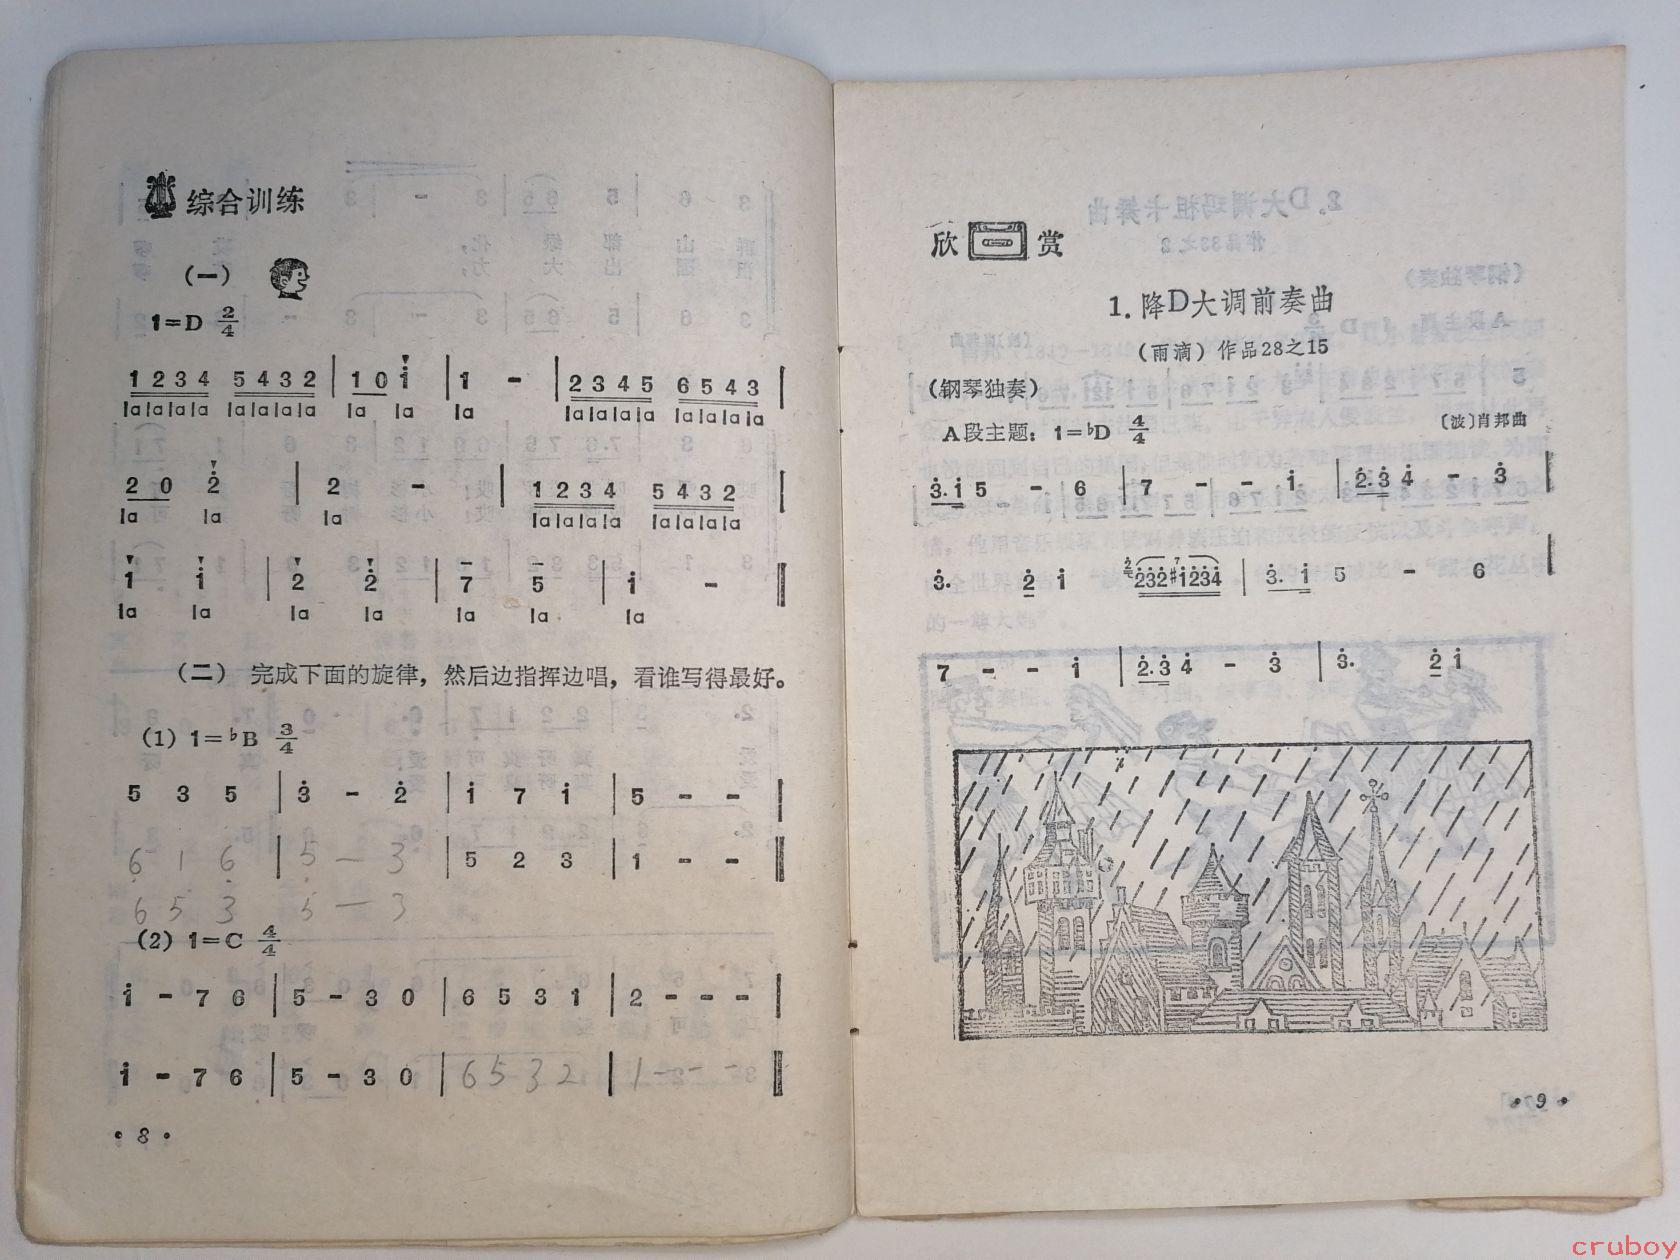 综合训练
（一）
1=D 2/4
1 2 3 4 5 4 3 2 | 1 0 i | 1 - | 2 3 4 5 6 5 4 3 |
la la la la la la la la la la la la la la la la la la la
2 0 2̇ | 2 - | 1 2 3 4 5 4 3 2 |
la la la la la la la la la la la
1 i | 2 2̇ | 7 5 | i - ‖
la la la la la la la
（二） 完成下面的旋律，然后边指挥边唱，看谁写得最好。
（1）1=♭B 3/4
5 3 5 | 3̇ - 2̇ | i 7 i | 5 - - |
6̣ 1 6̣ | 5̣ — 3 | 5 2 3 | 1 - - ‖
6 5 3 5 — 3
（2）1=C 4/4
i - 7 6 | 5 - 3 0 | 6 5 3 1 | 2 - - - |
i - 7 6 | 5 - 3 0 | 6 5 3 2 | 1 - - - ‖
• 8 •
欣赏
1. 降D大调前奏曲
（雨滴）作品28之15
（钢琴独奏）
A段主题：1=♭D 4/4
〔波〕肖邦曲
3̇. i 5 - 6 | 7 - - i | 2̇. 3̇ 4̇ - 3̇ |
3̇. 2̇ i 2̇ 2̇3̇2̇#i2̇3̇4̇ 7 | 3̇. i 5 - 6 |
7 - - i | 2̇. 3̇ 4̇ - 3̇ | 3̇. 2̇ i
• 9 •
cruboy